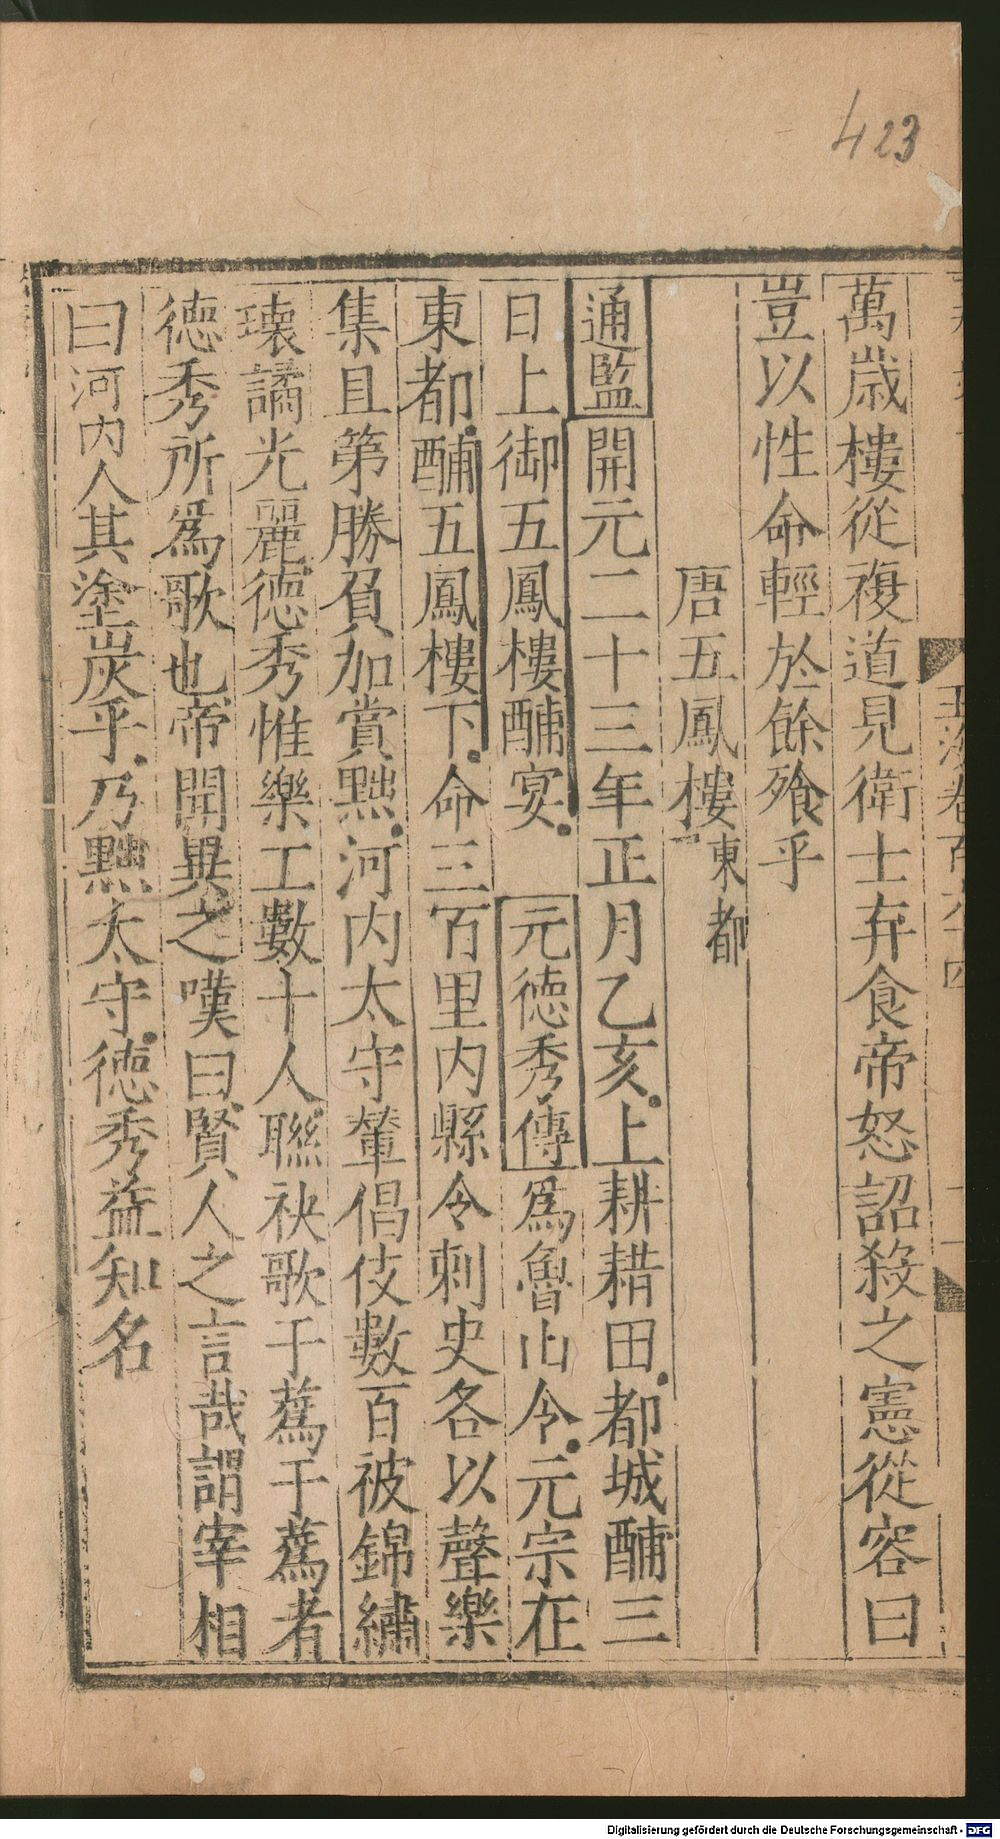 423
玉海卷百六十四
萬歳樓從複道見衛士弃食帝怒詔殺之憲從容曰
豈以性命輕於餘飱乎
唐五鳳樓東都
通監開元二十三年正月乙亥上耕耤田都城酺三
日上御五鳳樓酺宴 元德秀傳爲魯山令元宗在
東都酺五鳳樓下命三百里内縣令刺史各以聲樂
集且第勝負加賞黜河内太守輦倡伎數百被錦繡
瓌譎光麗德秀惟樂工數十人聯袂歌于蔿于蔿者
德秀所爲歌也帝聞異之嘆曰賢人之言哉謂宰相
曰河内人其塗炭乎乃黜太守德秀益知名
Digitalisierung gefördert durch die Deutsche Forschungsgemeinschaft - DFG